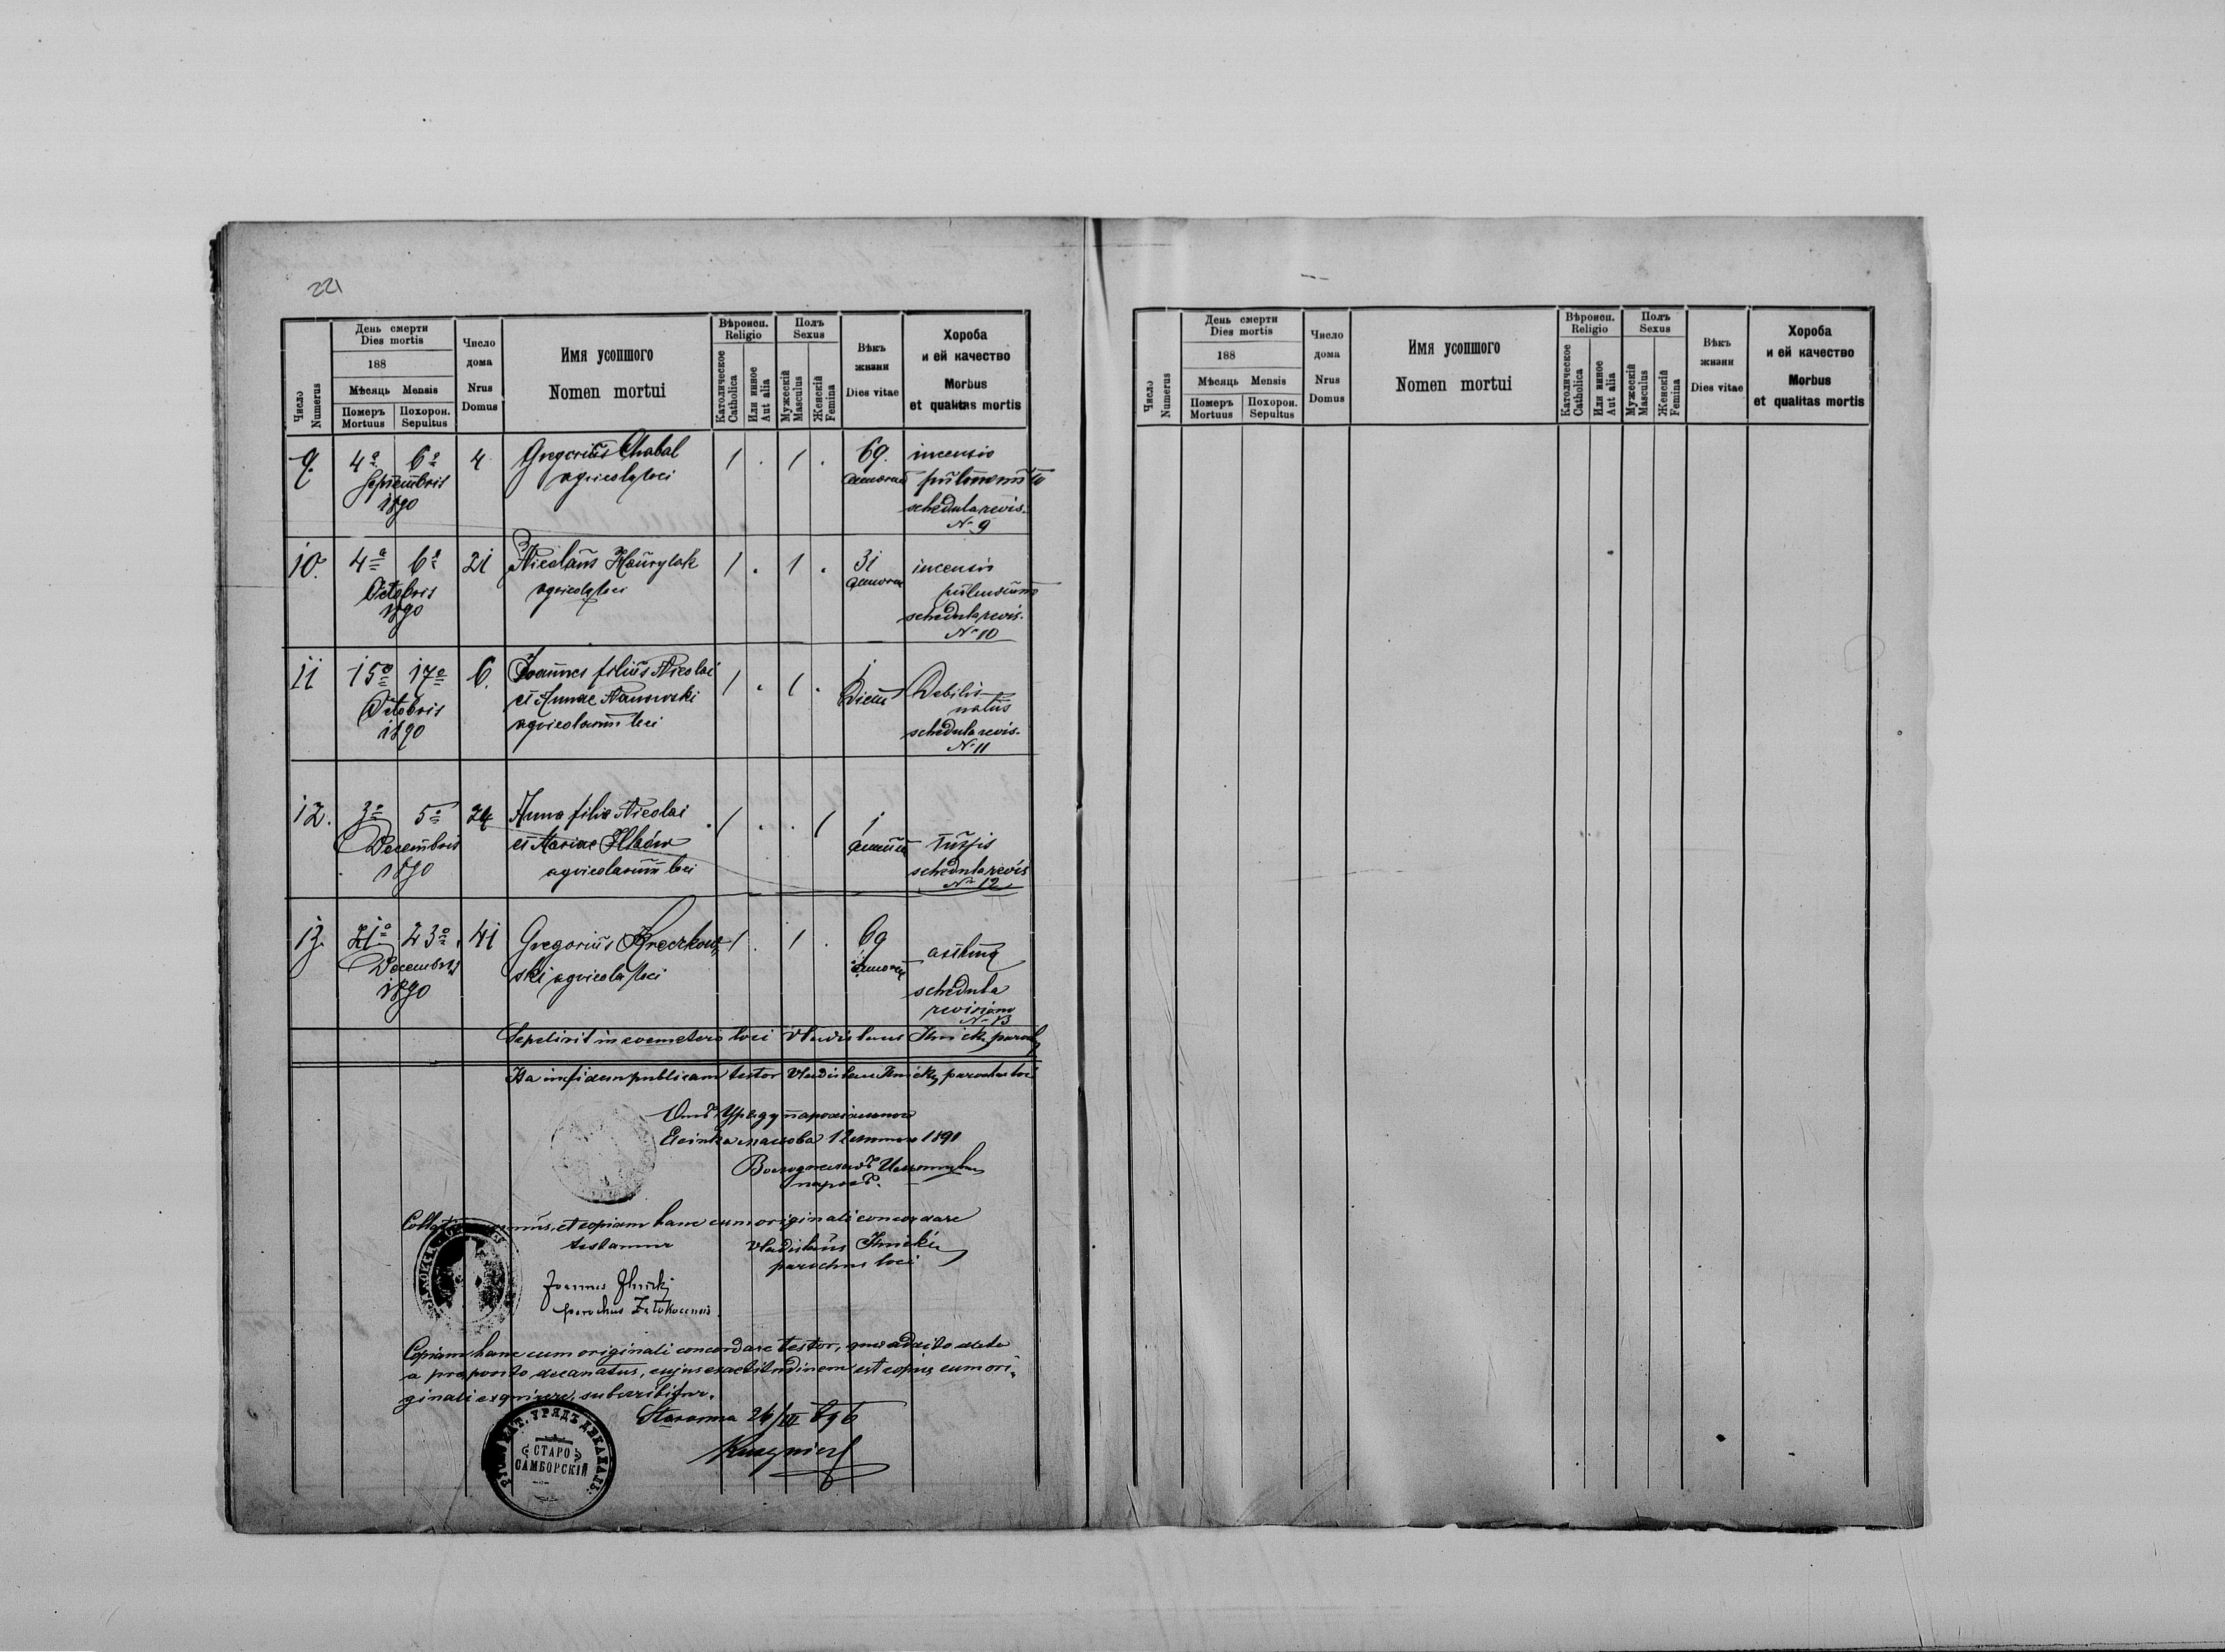 221
Число
Numerus
День смерти
Dies mortis
188
Мѣсяць Mensis
Померъ Похорон.
Mortuus Sepultus
Число
дома
Nrus
Domus
Имя усопшого
Nomen mortui
Вѣроисп.
Religio
Католическое
Catholica
Или инное
Aut alia
Полъ
Sexus
Мужескій
Masculus
Женскій
Femina
Вѣкъ
жизни
Dies vitae
Хороба
и ей качество
Morbus
et qualitas mortis
9. 4a 6a 4 Gregorius Chabal 1 . 1 . 69. incensio
Septembris agricola loci annorum pulmonum
1890 schedula revis.
No 9
10. 4a 6a 21 Nicolaus Hawrylak 1 . 1 . 31 incensio
Octobris agricola loci annorum pulmonum
1890 schedula revis.
No 10
11 15a 17a 6. Joannes filius Nicolai 1 . 1 . 1 Debilis
Octobris et Annae diei natus
1890 agricolarum loci schedula revis.
No 11
12. 3a 5a 24 Anna filia Nicolai . 1 . . 1 1
Decembris et Mariae Ilków tussis
1890 agricolarum loci schedula revis
No 12
13. 21a 23a 41 Gregorius Kreczkow 1 . 1 . 69
Decembris ski agricola loci annorum asthma
1890 schedula
revisions
No 13
Sepelivit in coemeterio loci Vladislaus Ilnicki parochus
Ita in fidem publicam testor Vladislaus Ilnicki parochus loci
Отъ Уряду парохіального
1891
парохъ.
et copiam hanc cum originali concordare
testamur Vladislaus Ilnicki
parochus loci
Joannes Ilnicki
parochus
Copiam hanc cum originali concordare testor,
a praeposito decanatus, cujus exactitudinem est copiis cum ori-
ginali exquirere, subscribitur.
26/III 896
УРЯДЪ ДЕКАНАЛЬ.
СТАРО
САМБОРСКІЙ
Число
Numerus
День смерти
Dies mortis
188
Мѣсяць Mensis
Померъ Похорон.
Mortuus Sepultus
Число
дома
Nrus
Domus
Имя усопшого
Nomen mortui
Вѣроисп.
Religio
Католическое
Catholica
Или инное
Aut alia
Полъ
Sexus
Мужескій
Masculus
Женскій
Femina
Вѣкъ
жизни
Dies vitae
Хороба
и ей качество
Morbus
et qualitas mortis